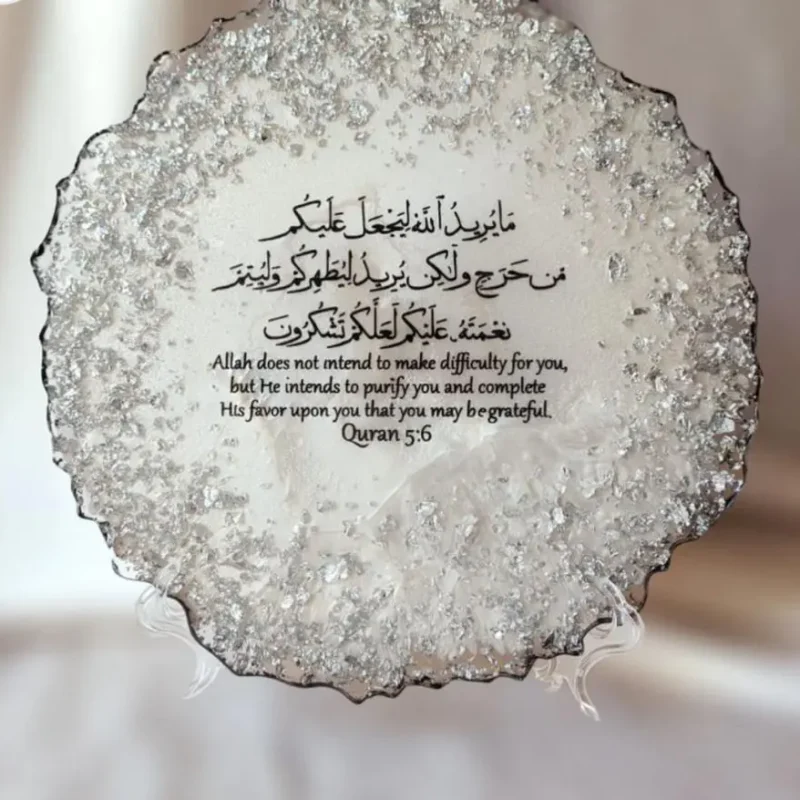 مَا يُرِيدُ ٱللَّهُ لِيَجْعَلَ عَلَيْكُم
مِّنْ حَرَجٍ وَلَٰكِن يُرِيدُ لِيُطَهِّرَكُمْ وَلِيُتِمَّ
نِعْمَتَهُۥ عَلَيْكُمْ لَعَلَّكُمْ تَشْكُرُونَ
Allah does not intend to make difficulty for you,
but He intends to purify you and complete
His favor upon you that you may be grateful.
Quran 5:6